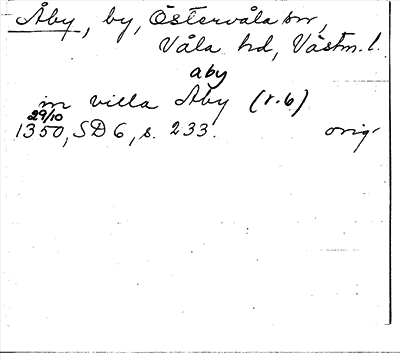 Åby, by, Östervåla sn,
Våla hd, Västm. l.
aby
in villa Åby (r. 6)
29/10
1350, SD 6, s. 233. orig.